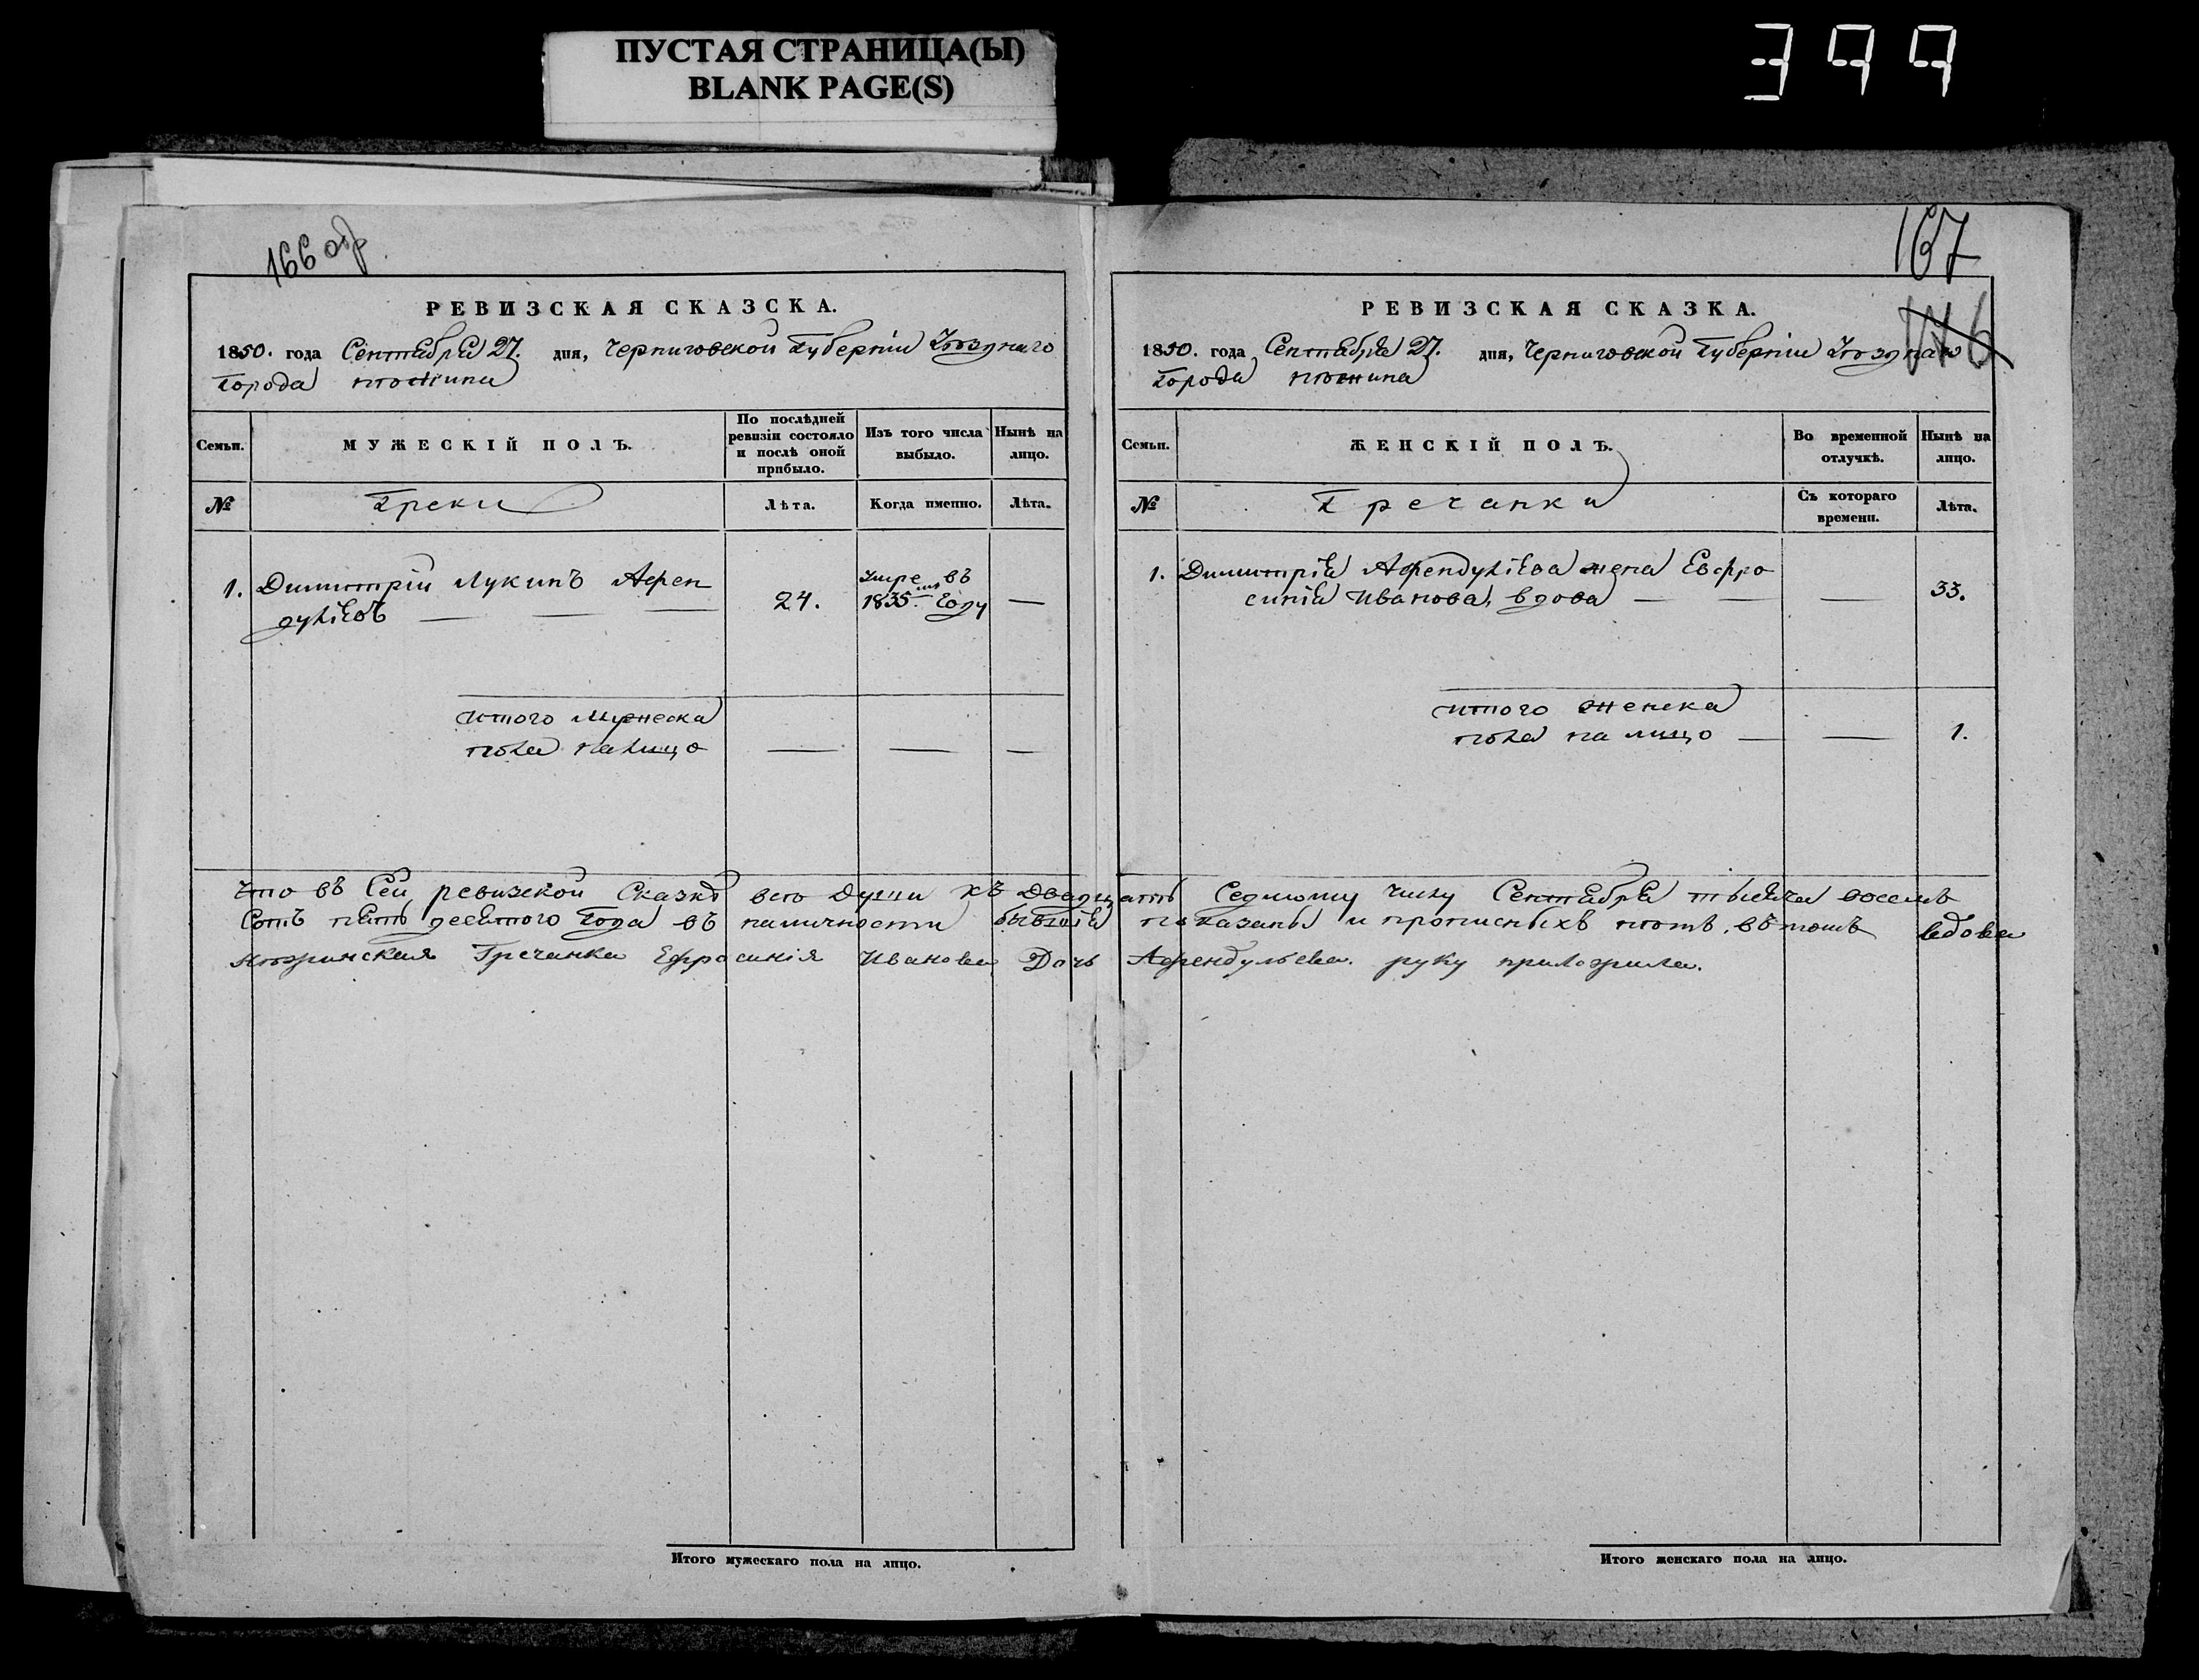 ПУСТАЯ СТРАНИЦА(Ы)
BLANK PAGE(S)
399
166 об
РЕВИЗСКАЯ СКАЗСКА.
1850. года Сентября 27. дня, Черниговской Губерніи Уѣзднаго
Города Нѣжина
Семьи.
МУЖЕСКІЙ ПОЛЪ.
По послѣдней ревизіи состояло и послѣ оной прибыло.
Изъ того числа выбыло.
Нынѣ на лицо.
№
Греки
Лѣта.
Когда именно.
Лѣта.
1. Димитрій Лукинъ Афен
дульевъ
24.
Умре въ
1835. Году
Итого Мужеска
пола налицо
167
РЕВИЗСКАЯ СКАЗКА.
1850. года Сентября 27. дня, Черниговской Губерніи Уѣзднаго
Города Нѣжина
Семьи.
ЖЕНСКІЙ ПОЛЪ.
Во временной отлучкѣ.
Нынѣ на лицо.
№
Гречанки
Съ котораго времени.
Лѣта.
1. Димитрія Афендульева жена Евфро
синія Иванова, вдова
33.
Итого женска
пола на лицо
1.
Что въ Сей ревизской Сказкѣ всѣ Души къ Двадцать Седмому Числу Сентября тысяча восемь
Сотъ пять десятого Года въ наличности бывшія показаны и прописныхъ нѣтъ, въ томъ вдова
Нѣжинская Гречанка Ефросинія Иванова Дочь Афендульева. руку приложила.
Итого мужескаго пола на лицо.
Итого женскаго пола на лицо.